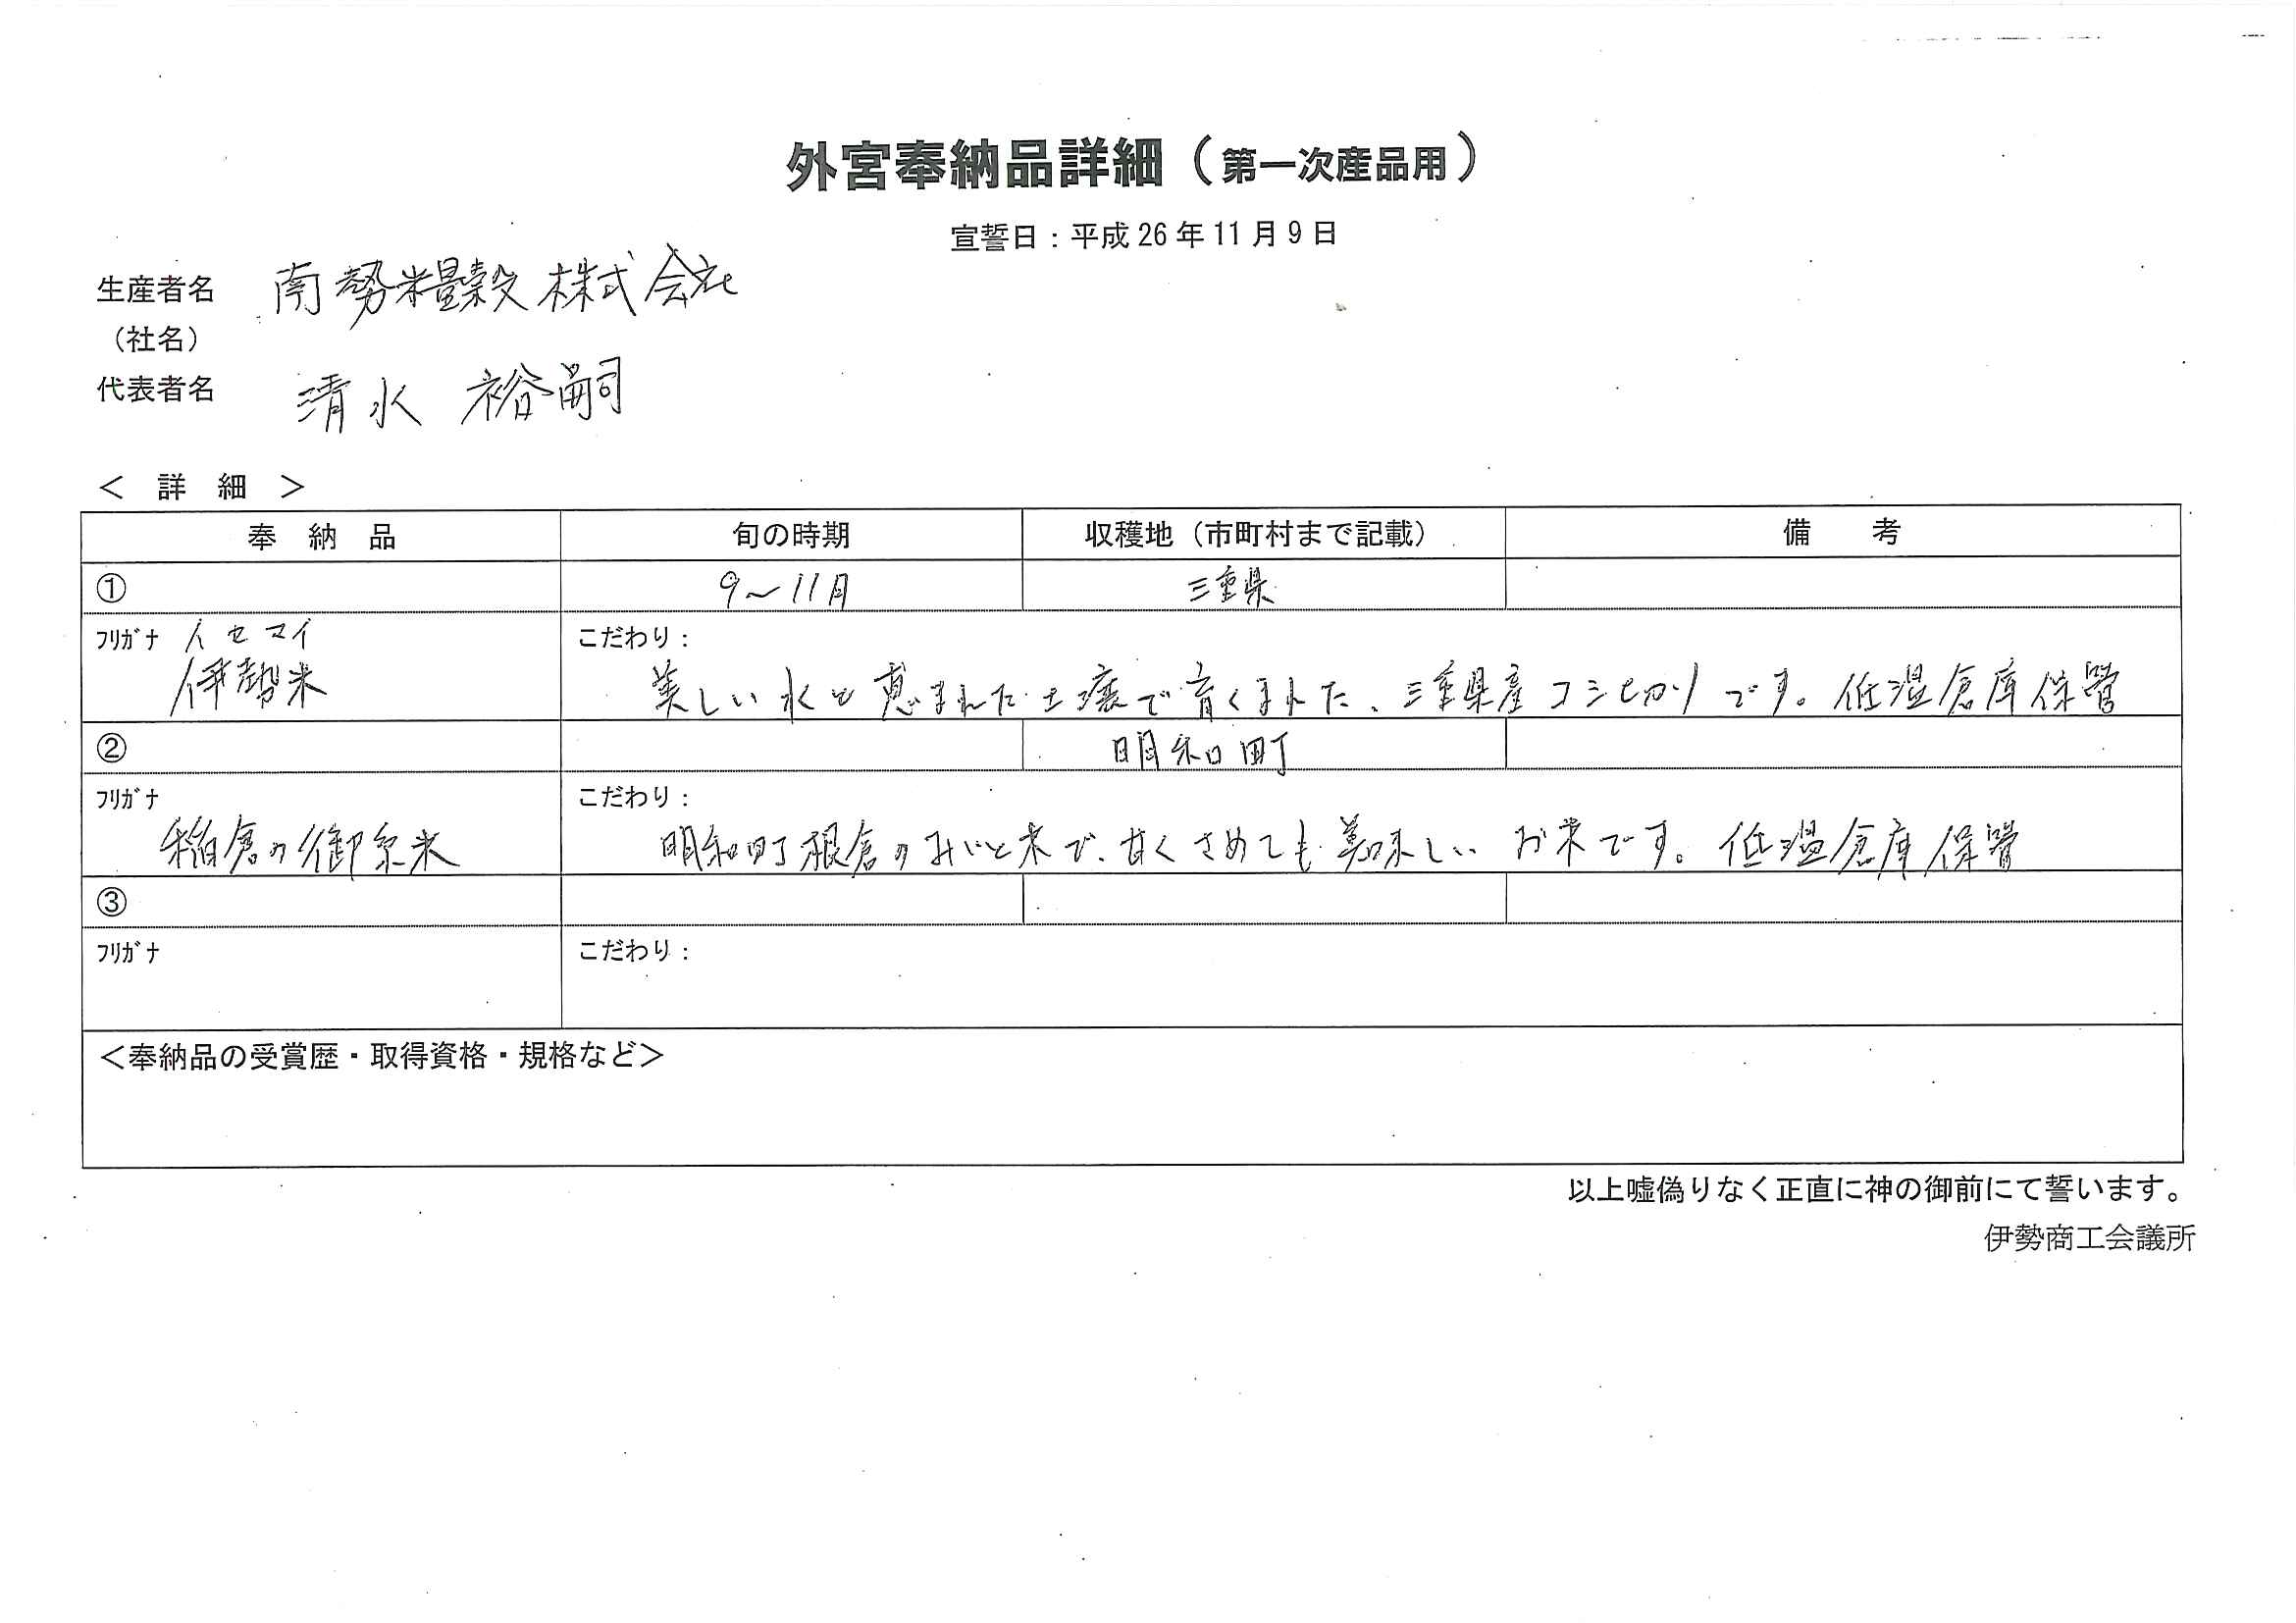 外宮奉納品詳細（第一次産品用）
宣誓日：平成26年11月9日
生産者名 南勢糧穀株式会社
（社名）
代表者名 清水 裕嗣
＜ 詳 細 ＞
奉 納 品 旬の時期 収穫地（市町村まで記載） 備 考
① 9～11月 三重県
ﾌﾘｶﾞﾅ イセマイ こだわり：
伊勢米 美しい水と恵まれた土壌で育くまれた、三重県産コシヒカリです。低温倉庫保管
② 明和町
ﾌﾘｶﾞﾅ こだわり：
稲倉の御糸米 明和町根倉のみいと米で、甘くさめても美味しいお米です。低温倉庫保管
③
ﾌﾘｶﾞﾅ こだわり：
＜奉納品の受賞歴・取得資格・規格など＞
以上嘘偽りなく正直に神の御前にて誓います。
伊勢商工会議所